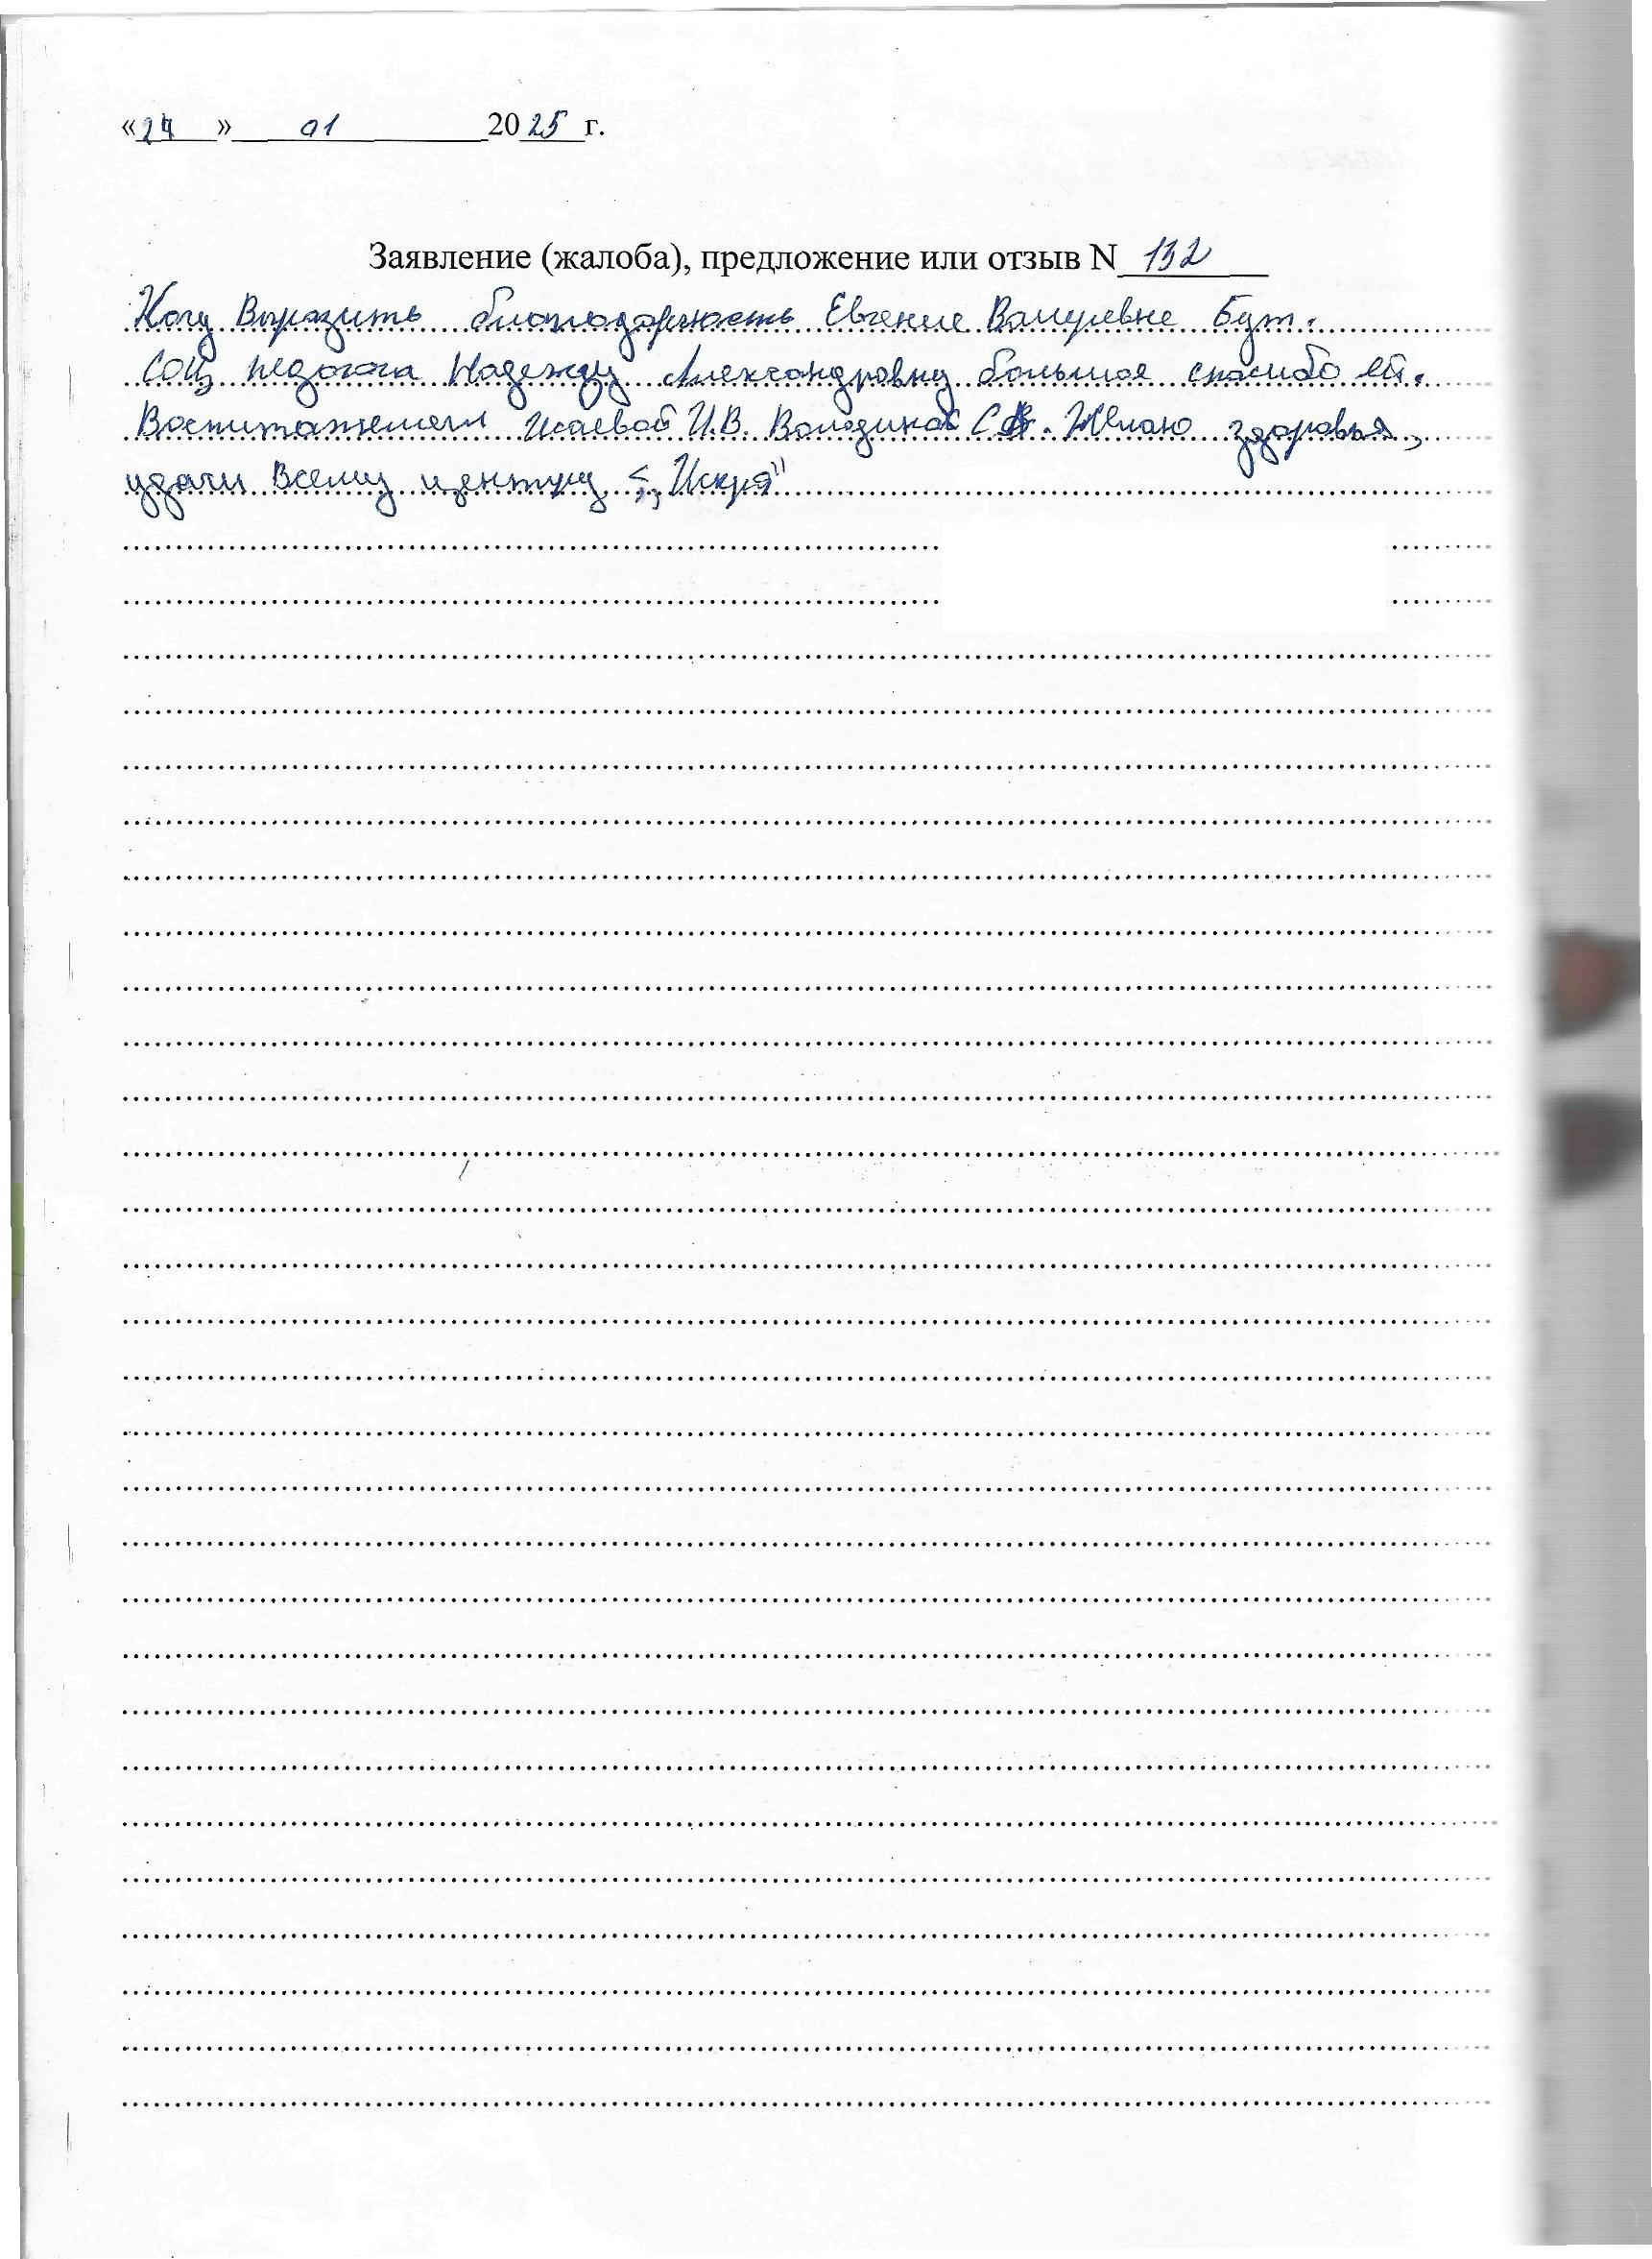 «24» 01 2025 г.
Заявление (жалоба), предложение или отзыв N 132
Хочу Выразить благодарность Евгение Валеревне Бут.
Соц педагога Надежду Александровну большое спасибо ей.
Воспитателям Исаевой И.В. Володиной С.А. Желаю здоровья,
удачи Всему центру „Искра"